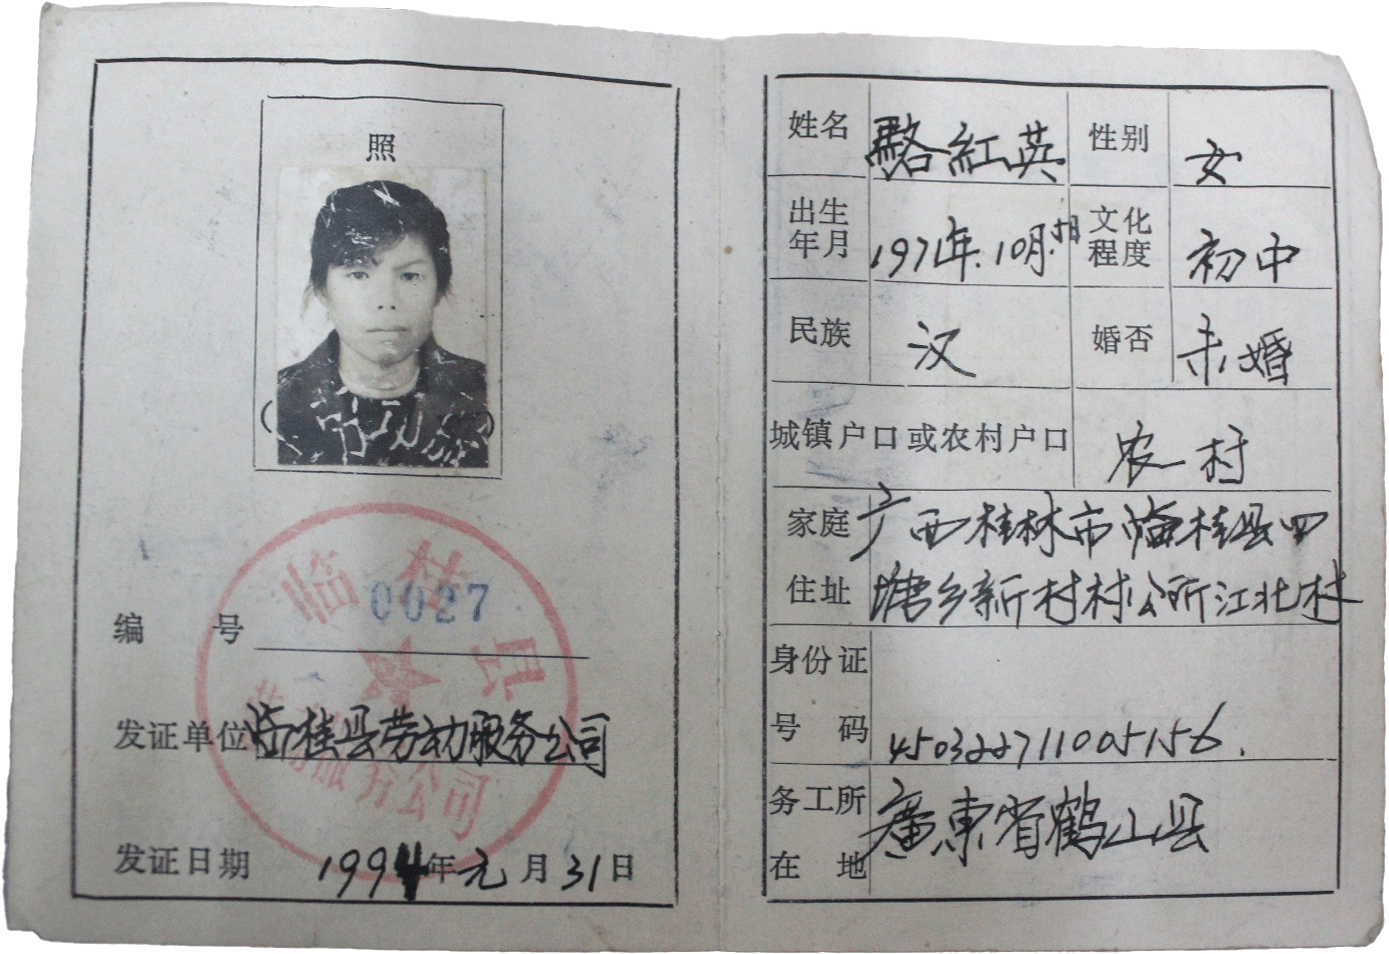 照
临桂县
劳动服务公司
编 号 0027
发证单位 临桂县劳动服务公司
发证日期 1994年元月31日
姓名 骆紅英 性别 女
出生年月 1971年.10月.5日 文化程度 初中
民族 汉 婚否 未婚
城镇户口或农村户口 农村
家庭 广西桂林市临桂县四
住址 塘乡新村村公所江北村
身份证
号码 450322711005156.
务工所 廣東省鹤山县
在地